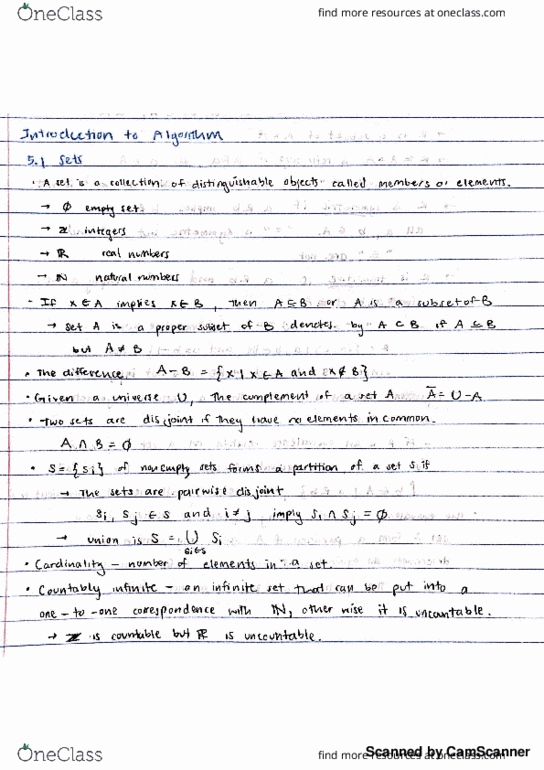 OneClass find more resources at oneclass.com
Introduction to Algorithm
5.1 Sets
• A set is a collection of distinguishable objects called members or elements.
→ ∅ empty set
→ ℤ integers
→ ℝ real numbers
→ ℕ natural numbers
- If x ∈ A implies x ∈ B, then A ⊆ B or A is a subset of B
→ set A is a proper subset of B denotes by A ⊂ B if A ⊆ B
but A ≠ B
• The difference A - B = {x | x ∈ A and x ∉ B}
• Given a universe U, the complement of a set A A̅ = U - A
• Two sets are disjoint if they have no elements in common.
A ∩ B = ∅
• S = {Si} of nonempty sets forms a partition of a set S if
→ The sets are pairwise disjoint
Si, Sj ∈ S and i ≠ j imply Si ∩ Sj = ∅
→ union is S = ⋃ Si
Si∈S
• Cardinality - number of elements in a set.
• Countably infinite - an infinite set that can be put into a
one-to-one correspondence with ℕ, other wise it is uncountable.
→ ℤ is countable but ℝ is uncountable.
OneClass find more resources at oneclass.com
Scanned by CamScanner